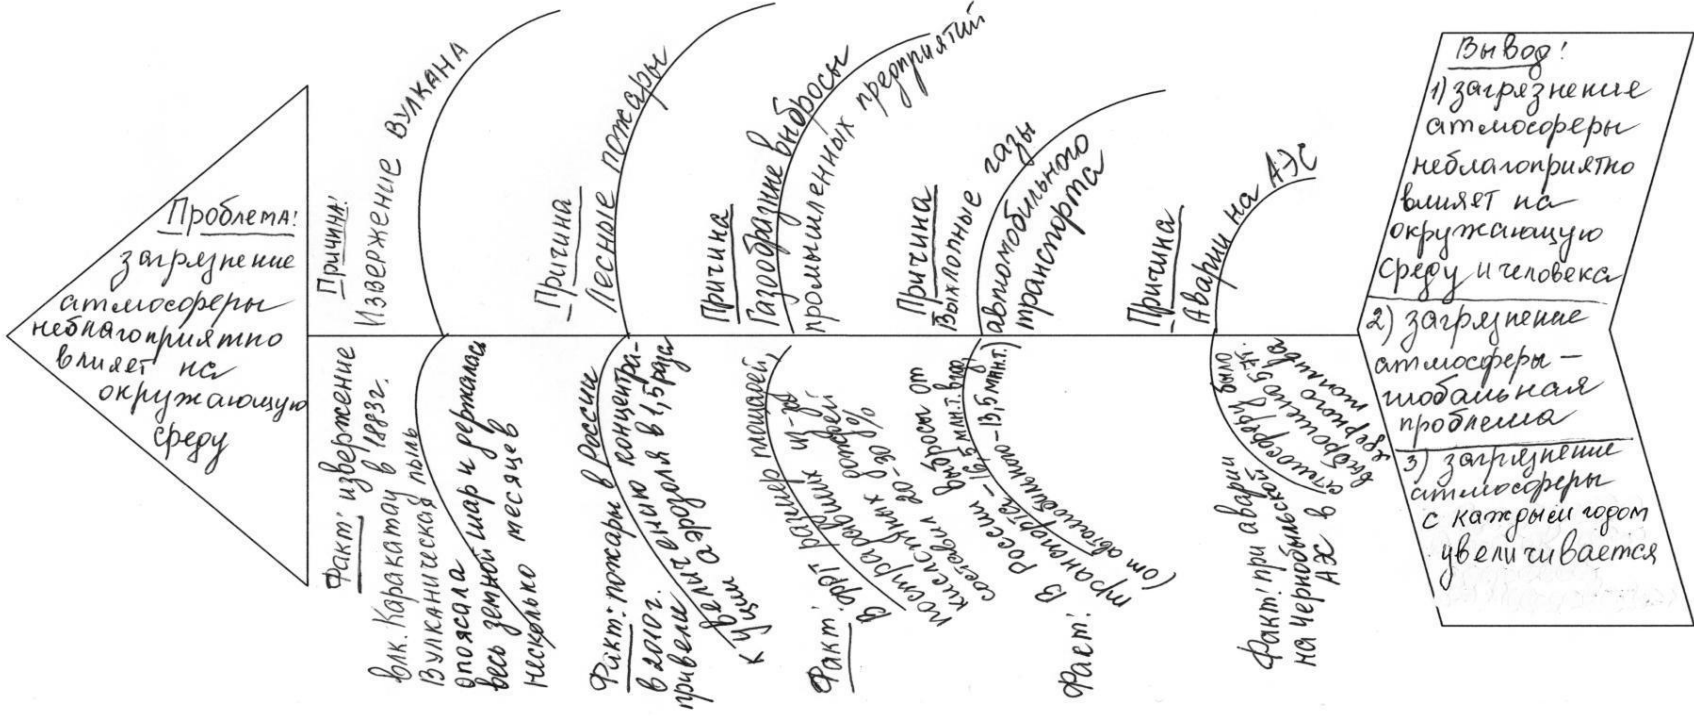 Проблема:
загрязнение
атмосферы
неблагоприятно
влияет на
окружающую
среду
Причина!
Извержение вулкана
Причина
Лесные пожары
Причина
Газообразные выбросы
промышленных предприятий
Причина
Выхлопные газы
автомобильного
транспорта
Причина
Аварии на АЭС
Факт: извержение
влк. Каракатау в 1883г.
Вулканическая пыль
опоясала
весь земной шар и держалась
несколько месяцев
Факт: пожары в России
в 2010г.
привели к увеличению концентра-
ции аэрозоля в 1,5 раза
Факт!
В фрг размер площадей,
пострадавших из-за
кислотных дождей
составил 20-30%
Факт!
В России выбросы от
транспорта - 16,5 млн.т. в год,
(от автомобильного - 13,5 млн.т.)
Факт! при аварии
на Чернобыльской
АЭС в атмосферу было
выброшено 5т.
ядерного топлива
Вывод!
1) загрязнение
атмосферы
неблагоприятно
влияет на
окружающую
среду и человека
2) загрязнение
атмосферы –
глобальная
проблема
3) загрязнение
атмосферы
с каждым годом
увеличивается